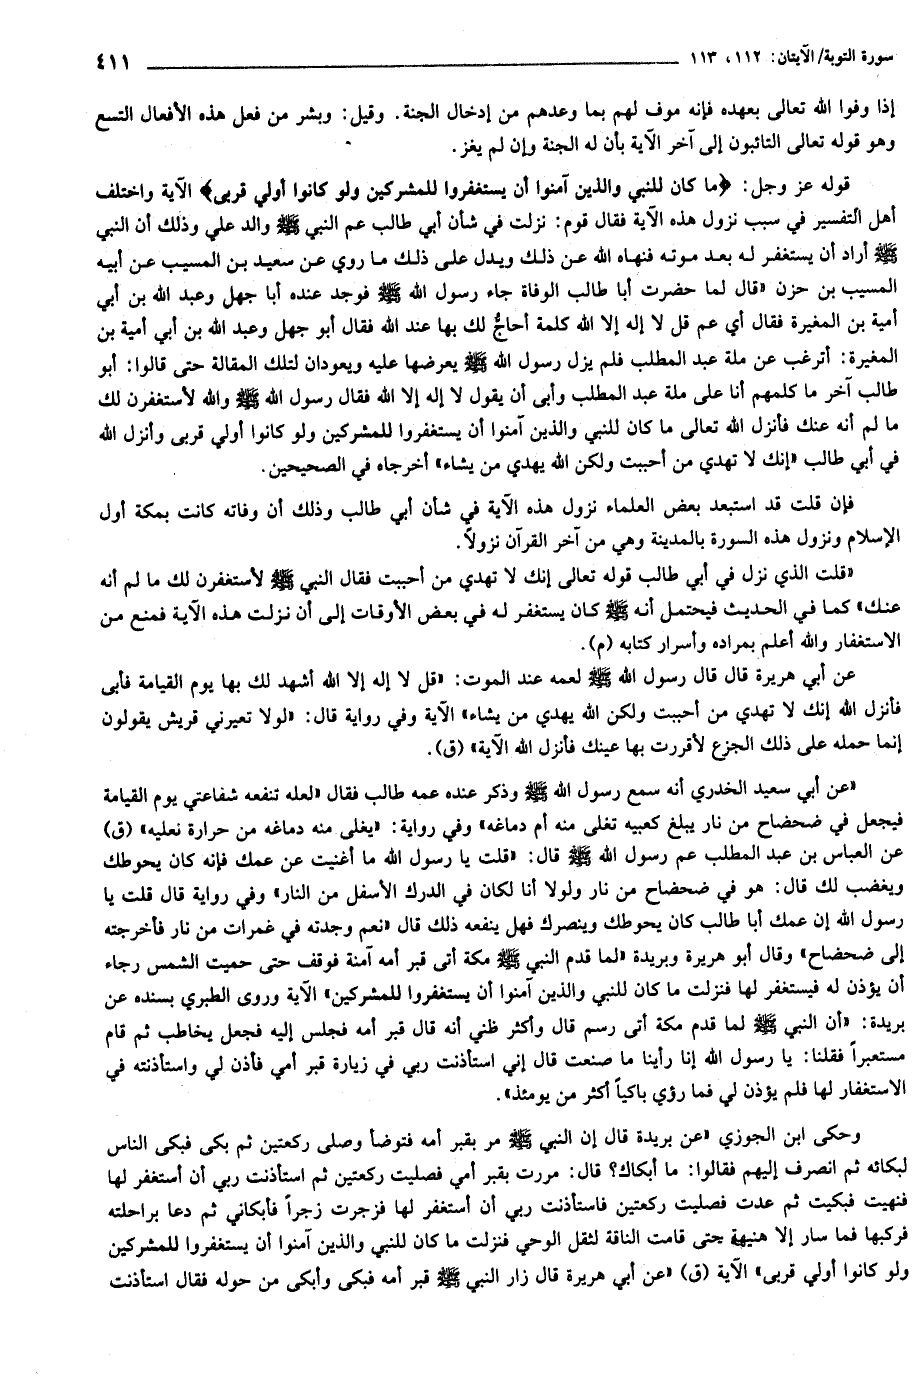 سورة التوبة/ الآيتان: ١١٢، ١١٣ ٤١١
إذا وفوا الله تعالى بعهده فإنه موف لهم بما وعدهم من إدخال الجنة. وقيل: وبشر من فعل هذه الأفعال التسع
وهو قوله تعالى التائبون إلى آخر الآية بأن له الجنة وإن لم يغز.
قوله عز وجل: ﴿ما كان للنبي والذين آمنوا أن يستغفروا للمشركين ولو كانوا أولي قربى﴾ الآية واختلف
أهل التفسير في سبب نزول هذه الآية فقال قوم: نزلت في شأن أبي طالب عم النبي ﷺ والد علي وذلك أن النبي
ﷺ أراد أن يستغفر له بعد موته فنهاه الله عن ذلك ويدل على ذلك ما روي عن سعيد بن المسيب عن أبيه
المسيب بن حزن «قال لما حضرت أبا طالب الوفاة جاء رسول الله ﷺ فوجد عنده أبا جهل وعبد الله بن أبي
أمية بن المغيرة فقال أي عم قل لا إله إلا الله كلمة أحاجُّ لك بها عند الله فقال أبو جهل وعبد الله بن أبي أمية بن
المغيرة: أترغب عن ملة عبد المطلب فلم يزل رسول الله ﷺ يعرضها عليه ويعودان لتلك المقالة حتى قالوا: أبو
طالب آخر ما كلمهم أنا على ملة عبد المطلب وأبى أن يقول لا إله إلا الله فقال رسول الله ﷺ والله لأستغفرن لك
ما لم أنه عنك فأنزل الله تعالى ما كان للنبي والذين آمنوا أن يستغفروا للمشركين ولو كانوا أولي قربى وأنزل الله
في أبي طالب «إنك لا تهدي من أحببت ولكن الله يهدي من يشاء» أخرجاه في الصحيحين.
فإن قلت قد استبعد بعض العلماء نزول هذه الآية في شأن أبي طالب وذلك أن وفاته كانت بمكة أول
الإسلام ونزول هذه السورة بالمدينة وهي من آخر القرآن نزولاً.
«قلت الذي نزل في أبي طالب قوله تعالى إنك لا تهدي من أحببت فقال النبي ﷺ لأستغفرن لك ما لم أنه
عنك» كما في الحديث فيحتمل أنه ﷺ كان يستغفر له في بعض الأوقات إلى أن نزلت هذه الآية فمنع من
الاستغفار والله أعلم بمراده وأسرار كتابه (م).
عن أبي هريرة قال قال رسول الله ﷺ لعمه عند الموت: «قل لا إله إلا الله أشهد لك بها يوم القيامة فأبى
فأنزل الله إنك لا تهدي من أحببت ولكن الله يهدي من يشاء» الآية وفي رواية قال: «لولا تعيرني قريش يقولون
إنما حمله على ذلك الجزع لأقررت بها عينك فأنزل الله الآية» (ق).
«عن أبي سعيد الخدري أنه سمع رسول الله ﷺ وذكر عنده عمه طالب فقال «لعله تنفعه شفاعتي يوم القيامة
فيجعل في ضحضاح من نار يبلغ كعبيه تغلى منه أم دماغه» وفي رواية: «يغلى منه دماغه من حرارة نعليه» (ق)
عن العباس بن عبد المطلب عم رسول الله ﷺ قال: «قلت يا رسول الله ما أغنيت عن عمك فإنه كان يحوطك
ويغضب لك قال: هو في ضحضاح من نار ولولا أنا لكان في الدرك الأسفل من النار» وفي رواية قال قلت يا
رسول الله إن عمك أبا طالب كان يحوطك وينصرك فهل ينفعه ذلك قال «نعم وجدته في غمرات من نار فأخرجته
إلى ضحضاح» وقال أبو هريرة وبريدة «لما قدم النبي ﷺ مكة أتى قبر أمه آمنة فوقف حتى حميت الشمس رجاء
أن يؤذن له فيستغفر لها فنزلت ما كان للنبي والذين آمنوا أن يستغفروا للمشركين» الآية وروى الطبري بسنده عن
بريدة: «أن النبي ﷺ لما قدم مكة أتى رسم قال وأكثر ظني أنه قال قبر أمه فجلس إليه فجعل يخاطب ثم قام
مستعبراً فقلنا: يا رسول الله إنا رأينا ما صنعت قال إني استأذنت ربي في زيارة قبر أمي فأذن لي واستأذنته في
الاستغفار لها فلم يؤذن لي فما رؤي باكياً أكثر من يومئذ».
وحكى ابن الجوزي «عن بريدة قال إن النبي ﷺ مر بقبر أمه فتوضأ وصلى ركعتين ثم بكى فبكى الناس
لبكائه ثم انصرف إليهم فقالوا: ما أبكاك؟ قال: مررت بقبر أمي فصليت ركعتين ثم استأذنت ربي أن أستغفر لها
فنهيت فبكيت ثم عدت فصليت ركعتين فاستأذنت ربي أن أستغفر لها فزجرت زجراً فأبكاني ثم دعا براحلته
فركبها فما سار إلا هنيهة حتى قامت الناقة لثقل الوحي فنزلت ما كان للنبي والذين آمنوا أن يستغفروا للمشركين
ولو كانوا أولي قربى» الآية (ق) «عن أبي هريرة قال زار النبي ﷺ قبر أمه فبكى وأبكى من حوله فقال استأذنت